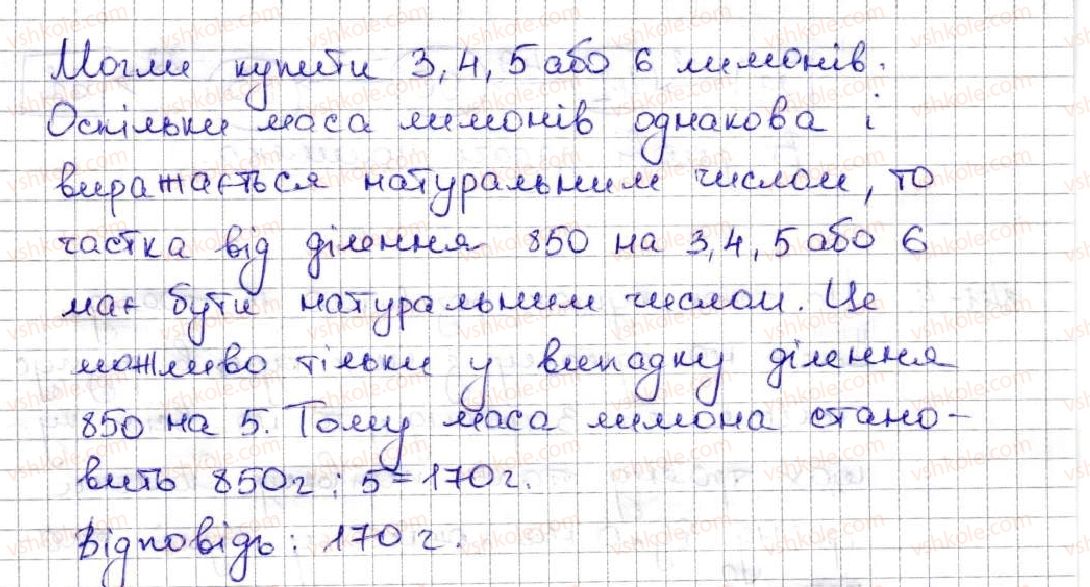 Могли купити 3, 4, 5 або 6 лимонів.
Оскільки маса лимонів однакова і
виражається натуральним числом, то
частка від ділення 850 на 3, 4, 5 або 6
має бути натуральним числом. Це
можливо тільки у випадку ділення
850 на 5. Тому маса лимона стано-
вить 850г : 5 = 170 г.
Відповідь: 170 г.
vshkole.com